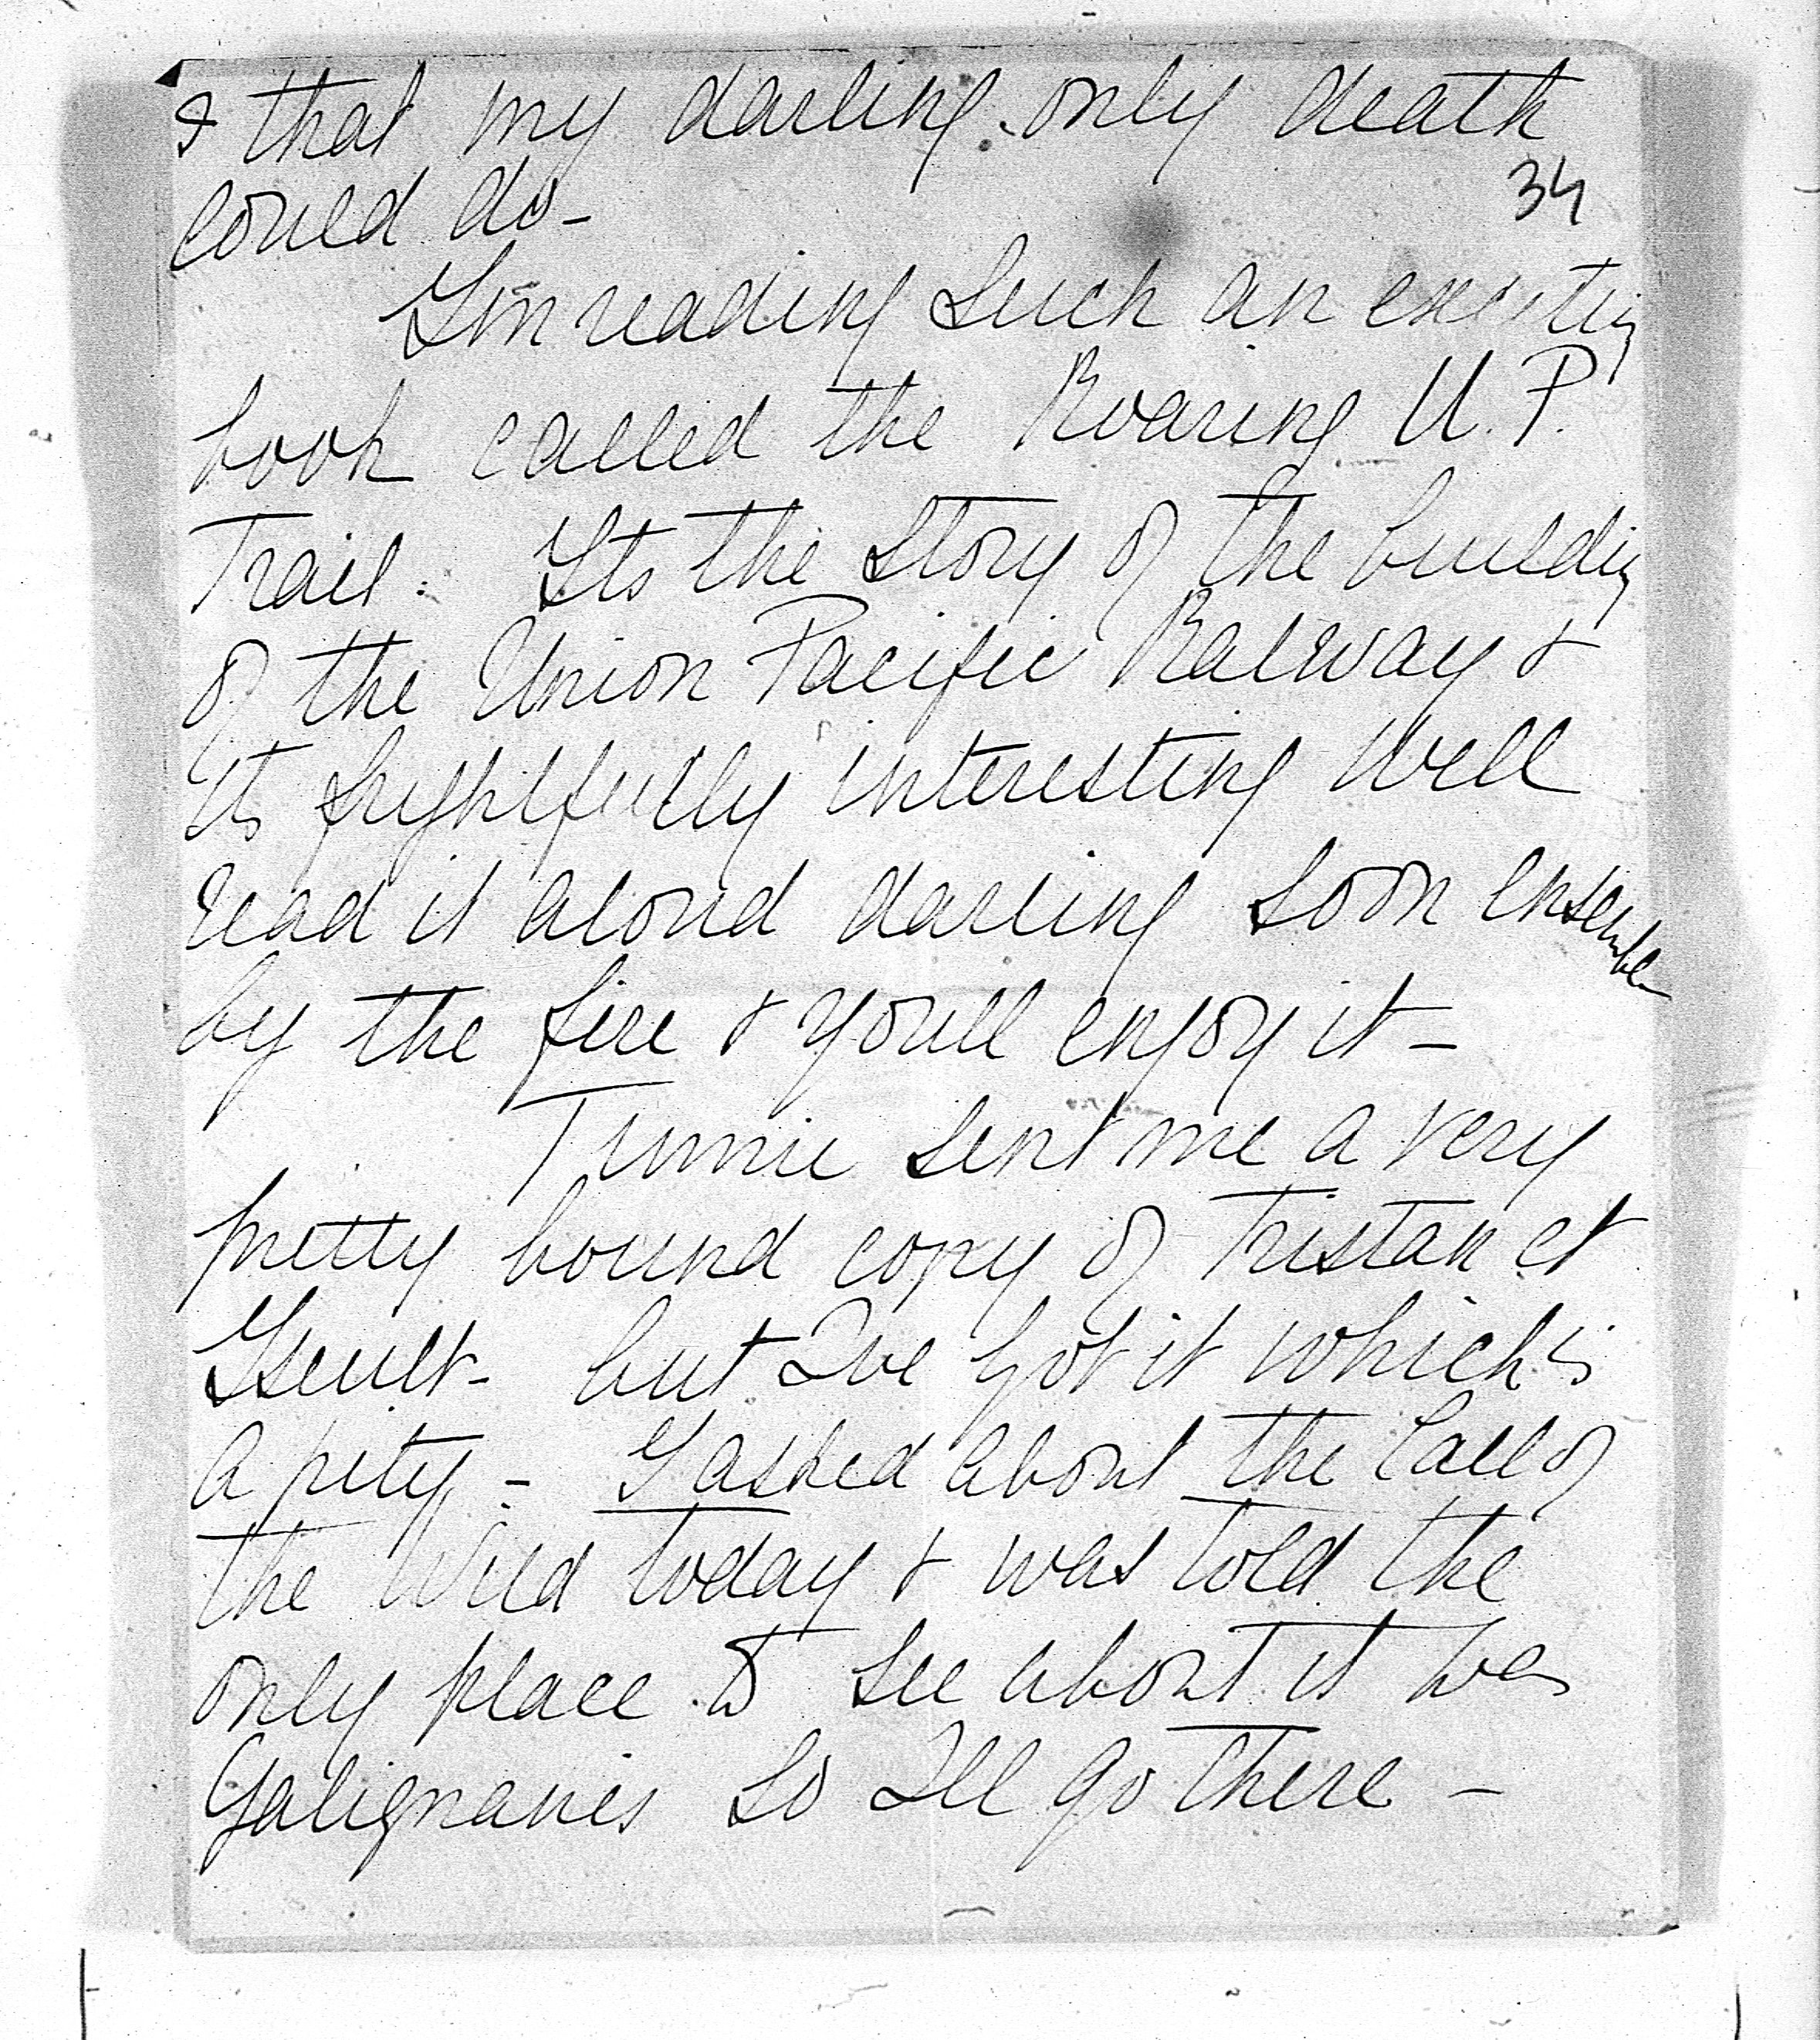 & that my darling only death
could do -
34
I'm reading such an exciting
book called the Roaring U.P.
Trail. Its the story of the building
of the Union Pacific Ralway &
its frightfully interesting Well
read it aloud darling soon ensemble
by the fire & youll enjoy it -
sent me a very
pretty bound copy of Tristan et
Iseult - but Ive got it which is
a pity - I asked about the Call of
the Wild today & was told the
only place to see about it was
Galignanis so Ill go there -